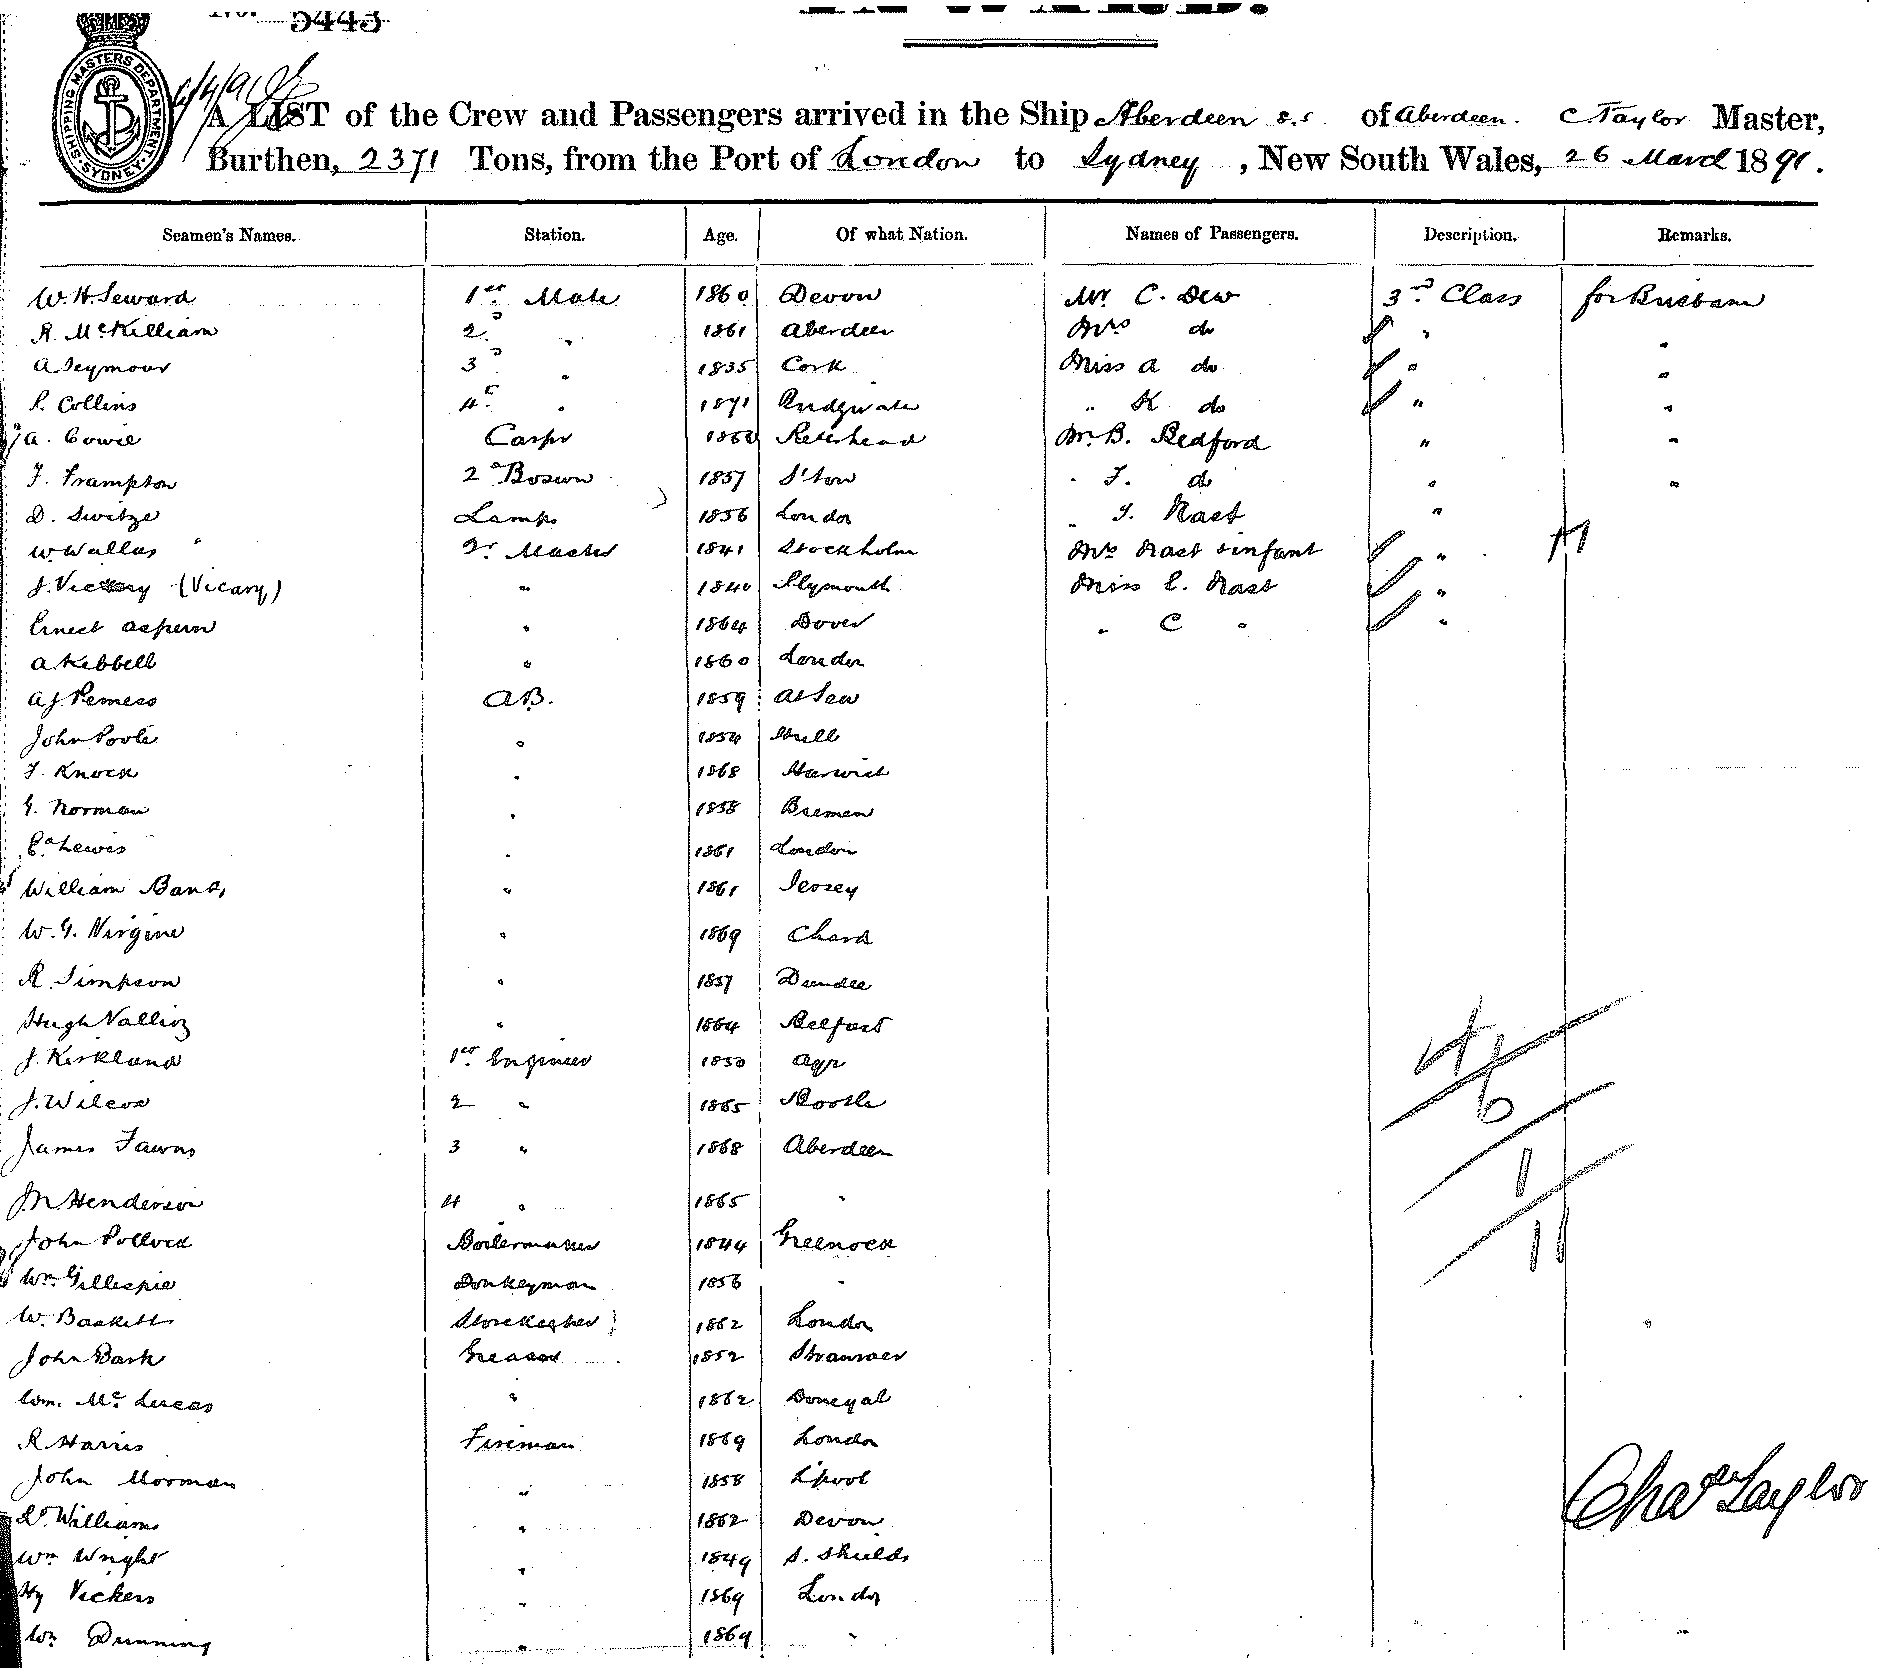 No. 5443
SHIPPING MASTERS DEPARTMENT
SYDNEY
A LIST of the Crew and Passengers arrived in the Ship Aberdeen s.s of Aberdeen. C Taylor Master,
Burthen, 2371 Tons, from the Port of London to Sydney, New South Wales, 26 March 1891.
Seamen's Names. Station. Age. Of what Nation. Names of Passengers. Description. Remarks.
W. H. Seward 1st Mate 1860 Devon Mr C. Dew 3rd Class for Brisbane
R. McKilliam 2d " 1861 Aberdeen Mrs do "  "
A Seymour 3d " 1835 Cork Miss A do " "
Collins 4th " 1871 Mr K do " "
A. Cowie Carpr Peterhead Mr B. Bedford " "
F. Frampton 2d Bosun 1857 S'ton " F. do " "
D. Switze Lamps 1856 London " Rast "
W Wallas " Qr Master 1841 Stockholm Mrs Rast & infant "
J. Vickery (Vicary) " 1840 Plymouth Miss E. Rast "
Ernest Aspern " 1864 Dover " C " "
A Kebbell " 1860 London
A J Remess AB. 1859 At Sea
John Poole " 1854 Hull
Knock " 1868 Harwich
G. Norman " 1858 Bremen
Lewis " 1861 London
William Banks " 1861 Jersey
W. G. Virgine " 1869 Chard
R. Simpson " 1857 Dundee
Hugh " 1864 Belfast
J. Kirkland 1st Engineer 1850 Ayr
J. Wilcox 2 " 1865 Bootle
James Fawns 3 " 1868 Aberdeen
J. M. Henderson 4 " 1865 "
John Pollock Boilermaker 1844 Greenock
Wm Gillespie Donkeyman 1856 "
W. Baskett Storekeeper 1862 London
John Bark Greaser 1852 Stranraer
Wm. Mc Lucas " 1862 Donegal
R Harris Fireman 1869 London
John Moorman " 1858 L'pool
Williams " 1862 Devon
Wm Wright " 1849 S. Shields
Hy Vickers " 1869 London
Wm Dunning " 1869 "
6
1
11
Chas Taylor